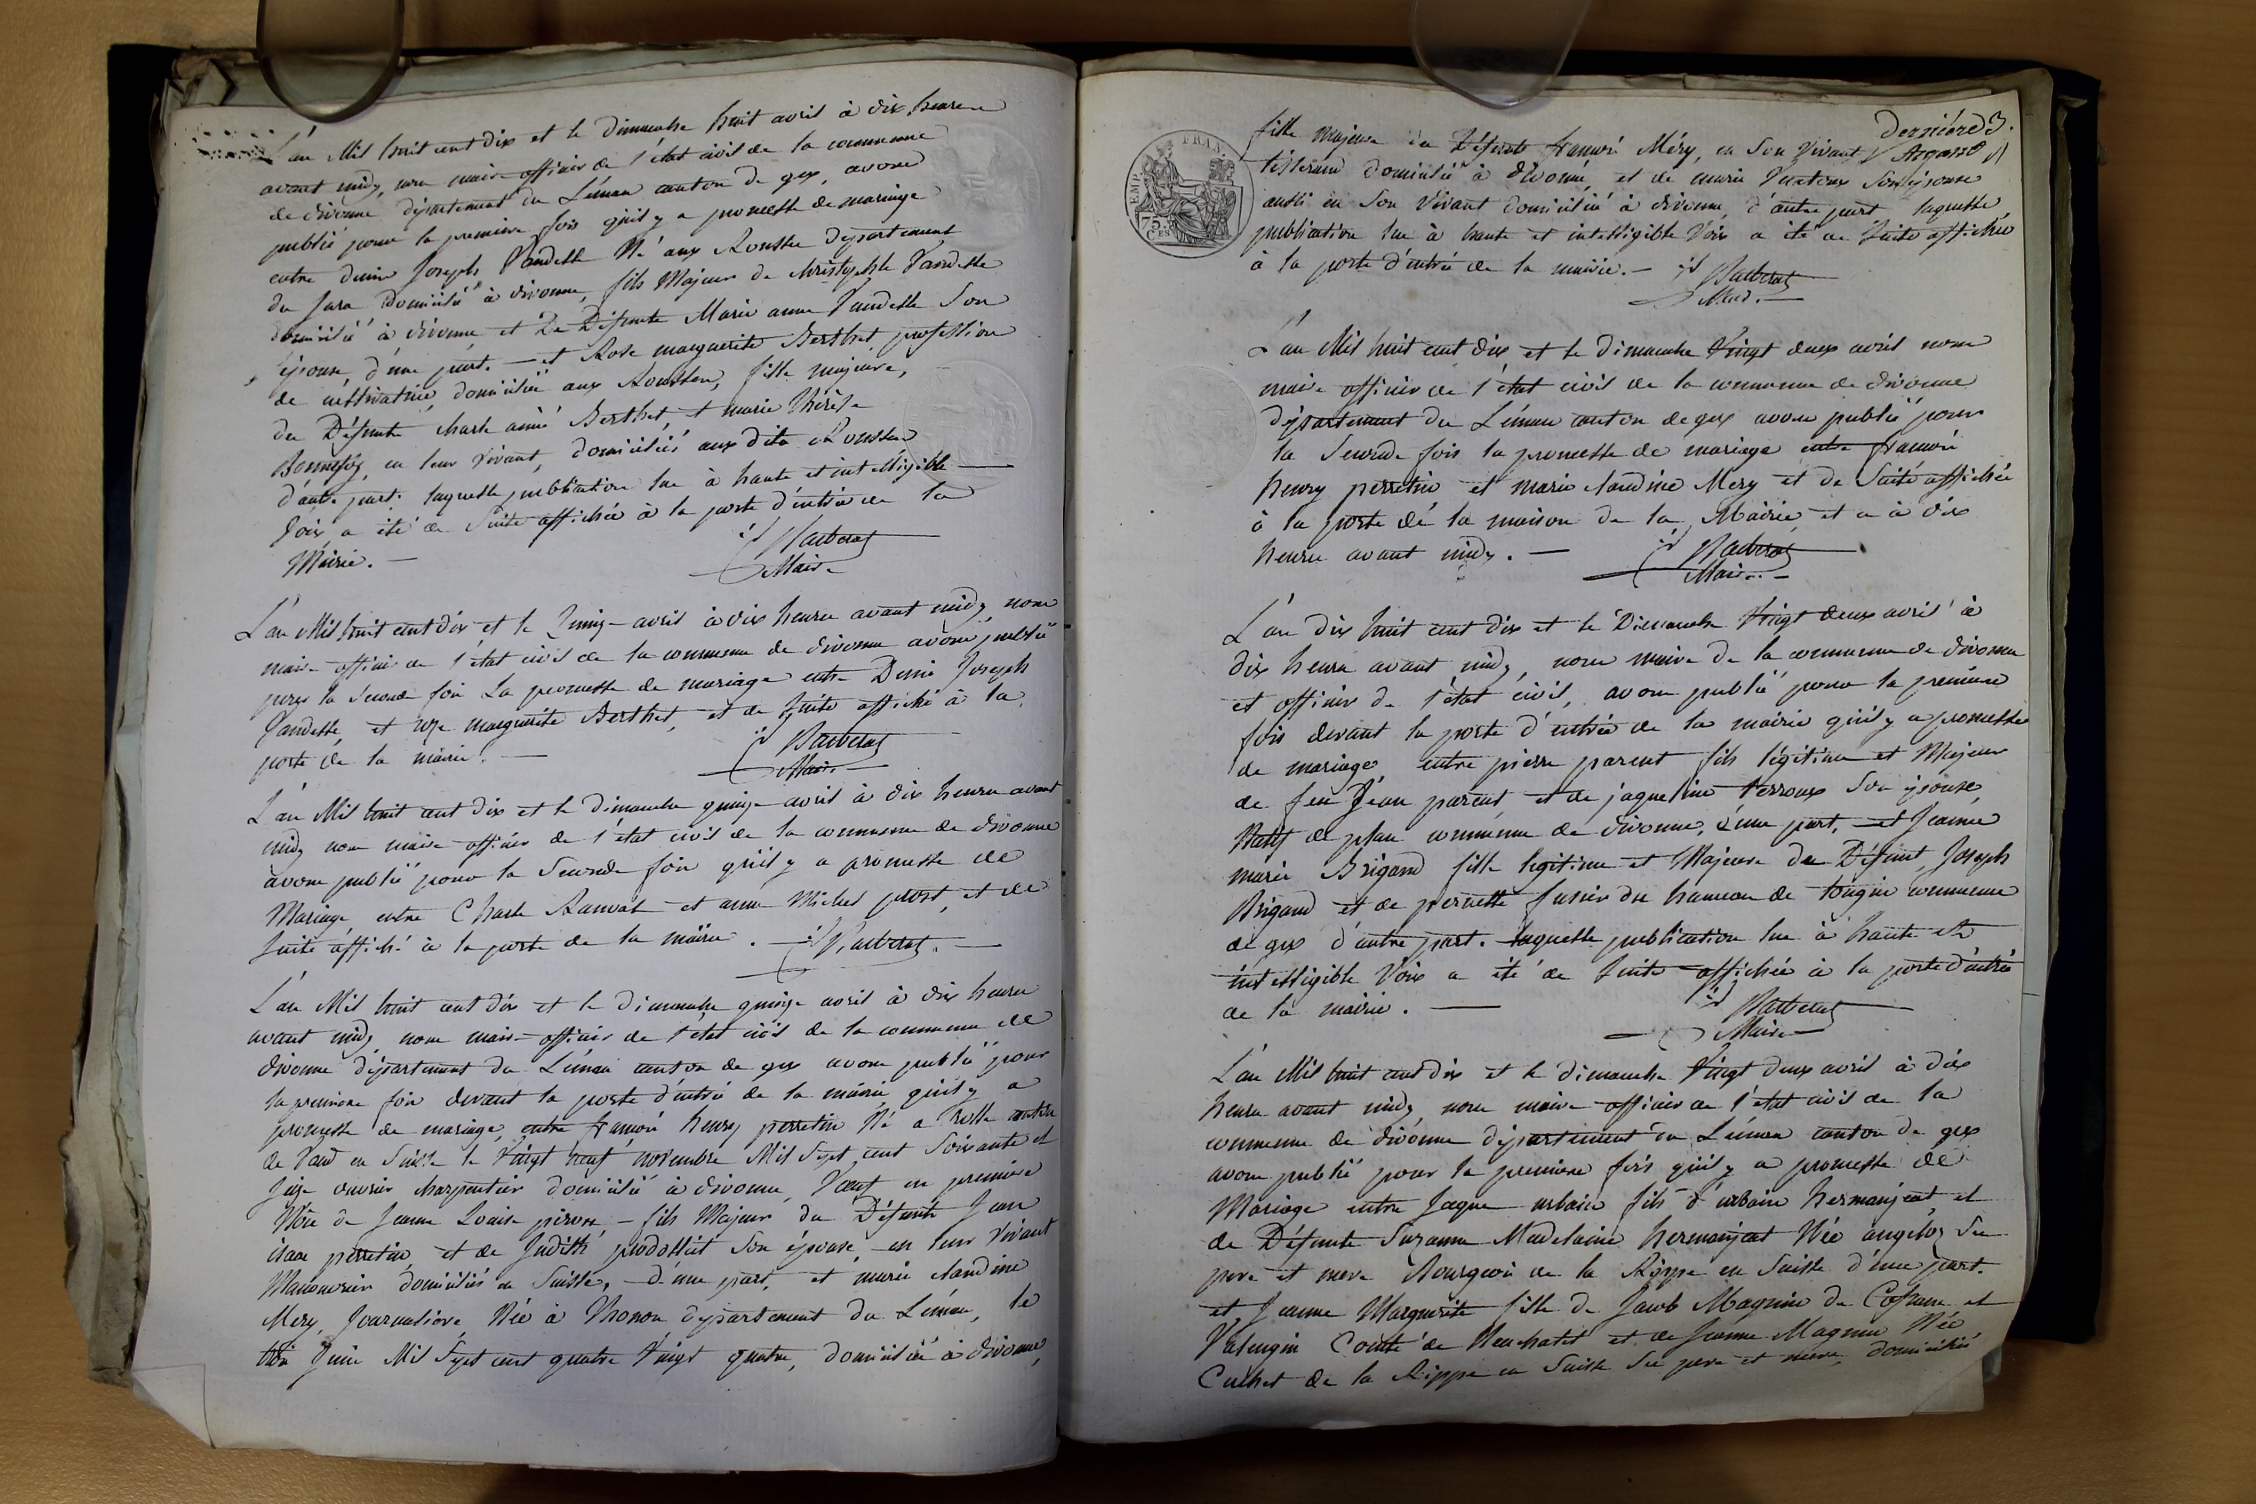 L'an Mil huit cent dix et le dimanche huit avril à dix heures
avant midy, nous maire officier de l'état civil de la commune
de divonne département du Léman canton de gex, avons
publié pour la premiere fois qu'il y a promesse de mariage
entre denis Joseph Vandelle Né aux Rousses département
du Jura domicilié à divonne, fils Majeur de Christophle Vandelle
domicilié à divonne et De Défunte Marie anne Vandelle Son
épouse, d'une part. — et Rose marguerite Berthet profession
de cultivatrice, domiciliée aux Rousses, fille majeure,
du Défunts charle aimé Berthet, et marie Thérèse
Bonnefoy, en leur vivant, domiciliés aux dits Rousses
d'autre part. laquelle publication lue à haute et intelligible
Voix a été de Suite affichée à la porte d'entrée de la
Mairie. — Barberat
Maire
L'an Mil huit cent dix et le quinze avril à dix heures avant midy nous
maire officier de l'état civil de la commune de divonne avons publié
pour la seconde fois La promesse de mariage entre Denis Joseph
Vandelle, et roze marguerite Berthet, et de suite affiché à la
porte de la mairie. — Barberat
Maire
L'an Mil huit cent dix et le dimanche quinze avril à dix heures avant
midy nous maire officier de l'état civil de la commune de divonne
avons publié pour la Seconde fois qu'il y a promesse de
Mariage entre Charle et anne Michel prost, et de
suite affiché à la porte de la mairie. — Barberat. —
L'an Mil huit cent dix et le dimanche quinze avril à dix heures
avant midy nous maire officier de l'état civil de la commune de
divonne département du Léman canton de gex avons publié pour
la premiere fois devant la porte d'entrée de la mairie qu'il y a
promesse de mariage, entre françois henry perretin Né a Rolle canton
de Vaud en Suisse le Vingt neuf novembre Mil Sept cent Soixante et
Seize ouvrier charpentier domicilié à divonne, Veuf en premiere
Nôce de Jeanne Louise — fils Majeur du Défunts Jean
isaac perretin, et de Judith Son épouse, en leur Vivant
domiciliés en Suisse, — d'une part, et marie claudine
Mery, Journaliere, Née à Thonon département du Léman, le
trois Juin Mil Sept cent quatre Vingt quatre, domiciliée à divonne,
Dernière 3.
fille majeure du Défunts françois Méry, en Son Vivant
tisserand domicilié à divonne, et de marie Son épouse
aussi en Son Vivant domicilié à divonne, d'autre part laquelle
publication lue à haute et intelligible Voix a été de Suite affichée
à la porte d'entrée de la mairie. — Barberat
EMP. FRAN.
75 C.es
L'an Mil huit cent dix et le dimanche Vingt deux avril nous
maire officier de l'état civil de la commune de divonne
département du Léman canton de gex avons publié pour
la Seconde fois la promesse de mariage entre françois
henry perretin et marie claudine Mery et de Suite affichée
à la porte de la maison de la Mairie et ce à dix
heures avant midy. — Barberat
Maire. —
L'an dix huit cent dix et le Dimanche Vingt deux avril à
dix heures avant midy, nous maire de la commune de divonne
et officier de l'état civil, avons publié pour la premiere
fois devant la porte d'entrée de la mairie qu'il y a promesse
de mariage, entre pierre parent fils légitime et Majeur
de feu Jean parent et de jaqueline Perroux Son épouse,
Natif de plan commune de divonne, d'une part, — et Jeanne
marie Brigand fille legitime et Majeure du Défunt Joseph
Brigand et de pernette fusier du hameau de tougin commune
de gex d'autre part. laquelle publication lue à haute et
intelligible Voix a été de Suite affichée à la porte d'entrée
de la mairie. — Barberat
Maire
L'an Mil huit cent dix et le dimanche Vingt deux avril à dix
heures avant midy nous maire officier de l'état civil de la
commune de divonne département du Léman canton de gex
avons publié pour la premiere fois qu'il y a promesse de
Mariage entre Jaque urbain fils d'urbain hermanjeat, et
de Défunte Suzanne Madelaine hermanjeat Née angeloz Ses
pere et mere Bourgeois de la Rippe en Suisse d'une part.
et Jeanne Marguerite fille de Jacob Magnin de Cofrane et
Valengin Comté de Neuchatel et de Jeanne Magnin Née
Cuchet de la Rippe en Suisse Ses pere et mere, domiciliés